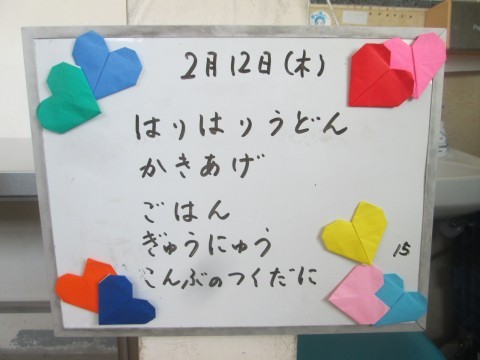 2月12日(木)
はりはりうどん
かきあげ
ごはん
ぎゅうにゅう
こんぶのつくだに
15